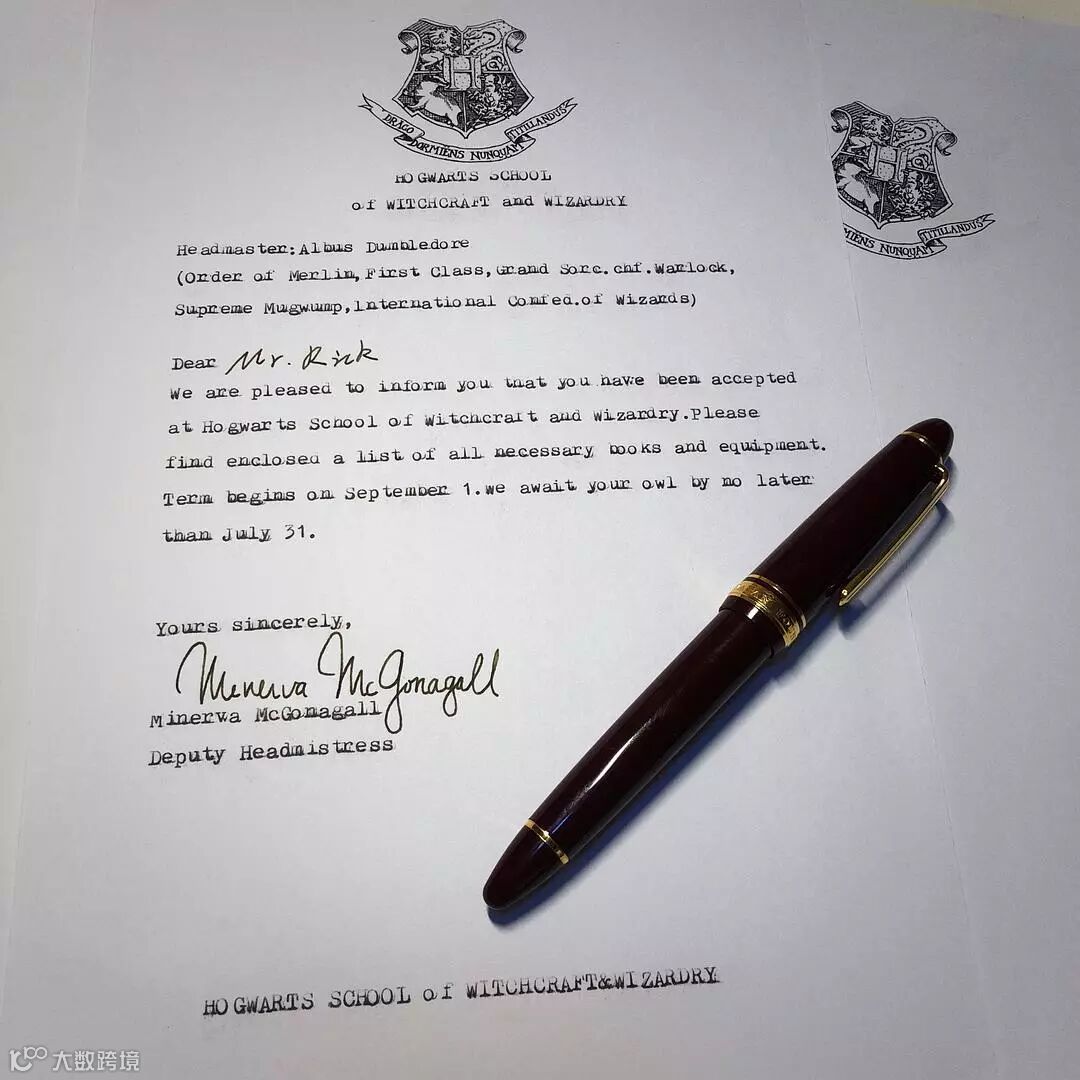 DRACO DORMIENS NUNQUAM TITILLANDUS
HOGWARTS SCHOOL
of WITCHCRAFT and WIZARDRY
MIENS NUNQUAM TITILLANDUS
Headmaster:Albus Dumbledore
(Order of Merlin,First Class,Grand Sorc.chf.Warlock,
Supreme Mugwump,International Confed.of Wizards)
Dear Mr. Rick
We are pleased to inform you that you have been accepted
at Hogwarts School of Witchcraft and Wizardry.Please
find enclosed a list of all necessary books and equipment.
Term begins on September 1.we await your owl by no later
than July 31.
Yours sincerely,
Minerva McGonagall
Minerva McGonagall
Deputy Headmistress
HOGWARTS SCHOOL of WITCHCRAFT&WIZARDRY
大数跨境